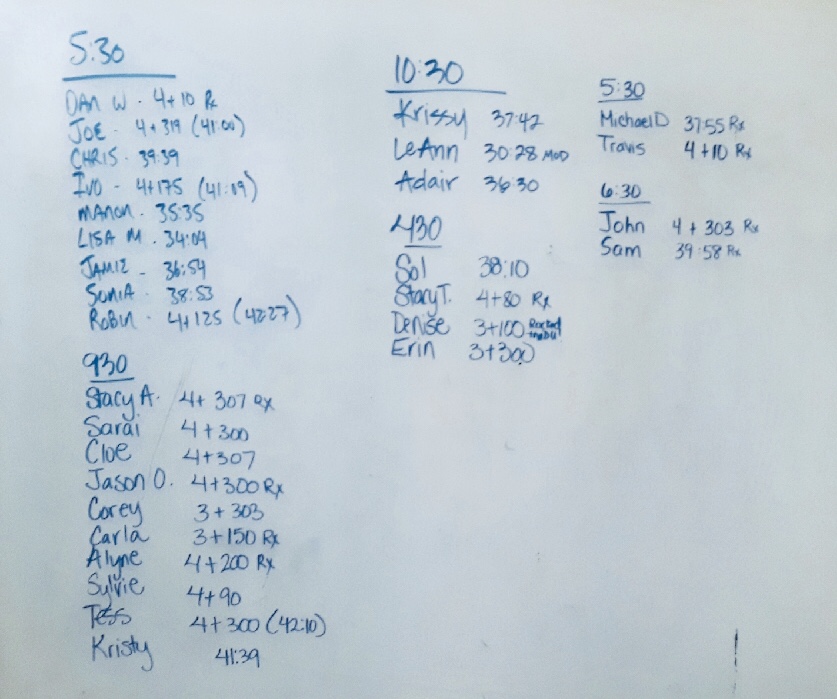 5:30
DAN W - 4+10 Rx
JOE - 4+319 (41:00)
CHRIS - 39:39
IVO - 4+175 (41:19)
MANON - 35:35
LISA M. - 34:04
JAMIE - 36:54
SONIA - 38:53
ROBIN - 4+125 (42:27)
930
Stacy A. 4+307 Rx
Sarai 4+300
Cloe 4+307
Jason O. 4+300 Rx
Corey 3+303
Carla 3+150 Rx
Alyne 4+200 Rx
Sylvie 4+90
Tess 4+300 (42:10)
Kristy 41:39
10:30
Krissy 37:42
LeAnn 30:28 MOD
Adair 36:30
430
Sol 38:10
Stacy T. 4+80 Rx
Denise 3+100
Erin 3+300
5:30
Michael D 37:55 Rx
Travis 4+10 Rx
6:30
John 4+303 Rx
Sam 39:58 Rx